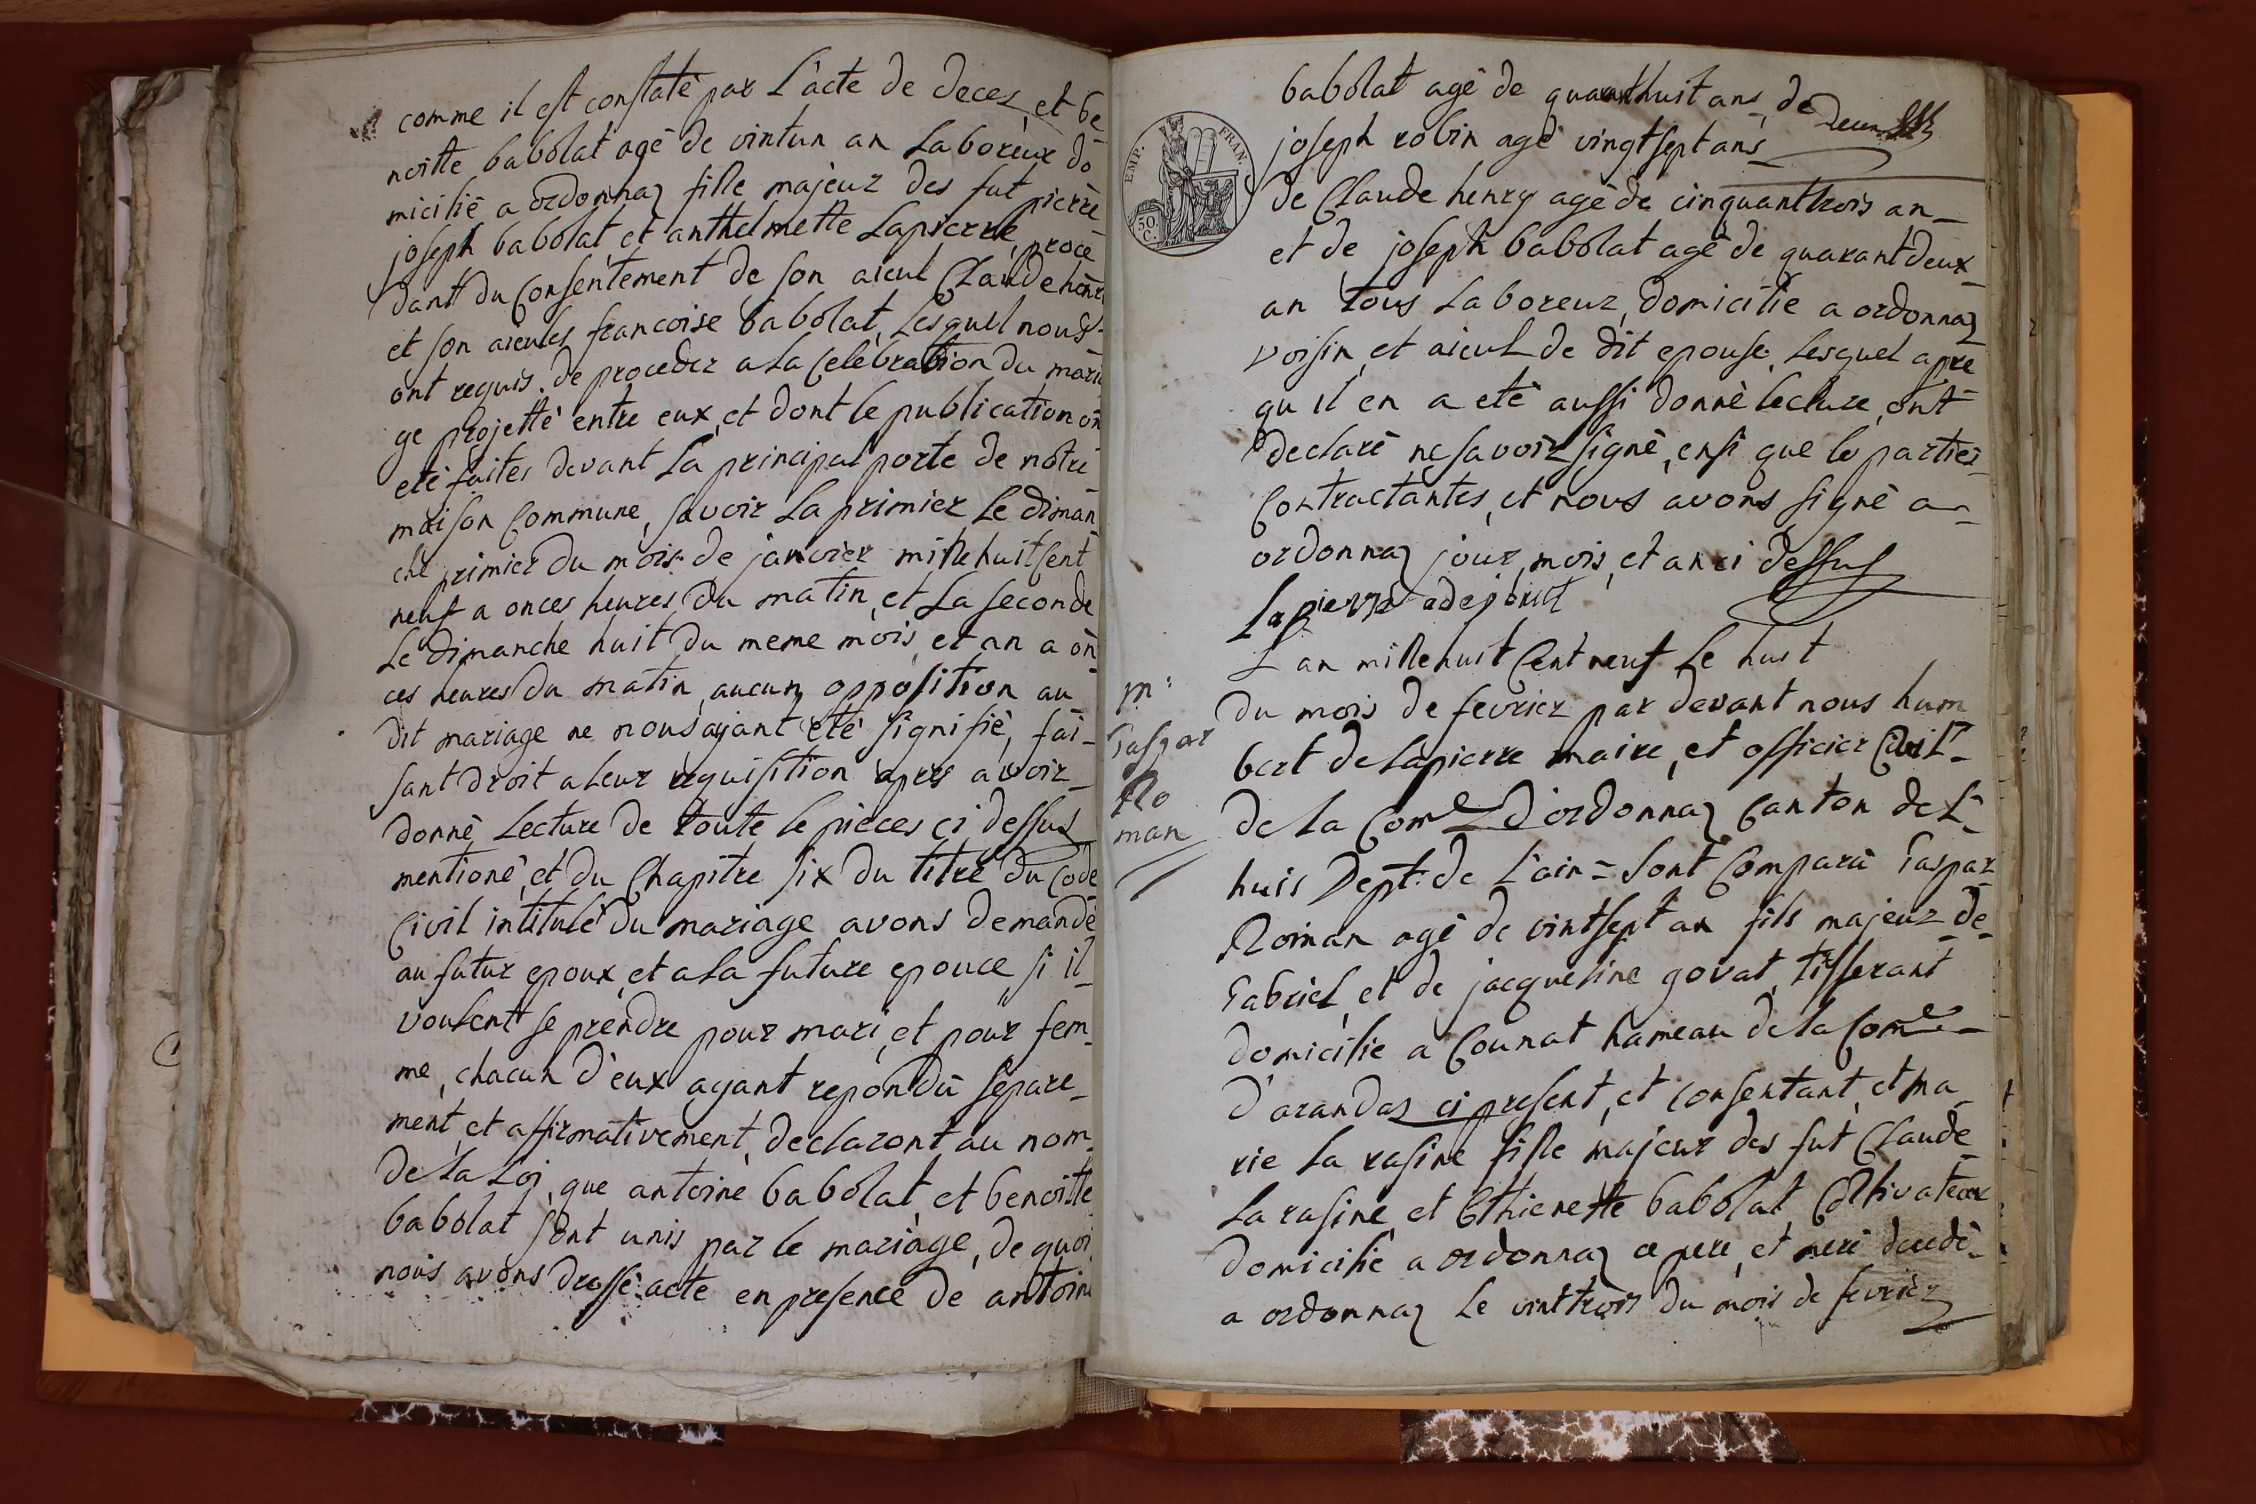 comme il est constaté par L'acte de deces, et be
noitte babolat agé de vintun an Laboreur do
micilié a ordonnaz fille majeur des fut pierre
joseph babolat et anthelmette Lapierre, proce
dant du Consentement de son aieul Claude henri
et son aieules francoise babolat, Lesquel nous
ont requis de proceder a la Celebration du maria
ge projetté entre eux, et dont le publication on
eté faites devant La principal porte de notre
maison Commune, savoir La primier Le diman
che primier du mois de janvier mille huit Cent
neuf a onces heures du matin, et La seconde
Le dimanche huit du meme mois, et an a on
ces heures du matin, aucun opposition au
dit mariage ne nous ajant eté signifié, fai
sant droit a Leur requisition apres avoir
donné Lecture de toute le pieces ci dessus
mentioné, et du Chapitre six du titre du Code
Civil intitulé du mariage avons demandé
au futur epoux, et a La future epouce si il
voulent se prendre pour mari, et pour fem
me, chacun d'eux ayant repondu separe
ment, et affirmativement, declaront au nom
de La Loi, que antoine babolat, et benoitte
babolat sont unis par le mariage, de quoi
nous avons drossé acte en presence de antoine
EMP. FRAN.
50 C.
babolat agé de quaranthuit ans, de
joseph robin agé vingtsept ans
de Claude henry agé de cinquanttrois an
et de joseph babolat agé de quarantdeux
an tous Laboreur, domicilié a ordonnaz
voisin, et aieul de dit epouse. Lesquel apre
qu il en a eté aussi donné lecture, ont
declaré ne savoir signé, ensi que le parties
Contractantes, et nous avons signé a
ordonnaz jour, mois, et an ci dessus
Lapierre
m:
Gaspar
Ro
man
L an mille huit Cent neuf Le huit
du mois de fevrier par devant nous hum
bert deLapierre maire, et officier Civil
de La Com.e d'ordonnaz Canton de L
huis Dept. de L'ain = Sont Comparu Gaspar
Roman agé de vintsept an fils majeur de
Gabriel, et de jacqueline govat, tisserant
domicilié a Counat hameau de la Com.e
d'arandas ci present, et consentant, et ma
rie La rasine fille majeur des fut Claude
La rasine, et Ethienette babolat, Coltivateur
domicilié a ordonnaz ce pere, et mere decedé
a ordonnaz Le vinttrois du mois de fevrier